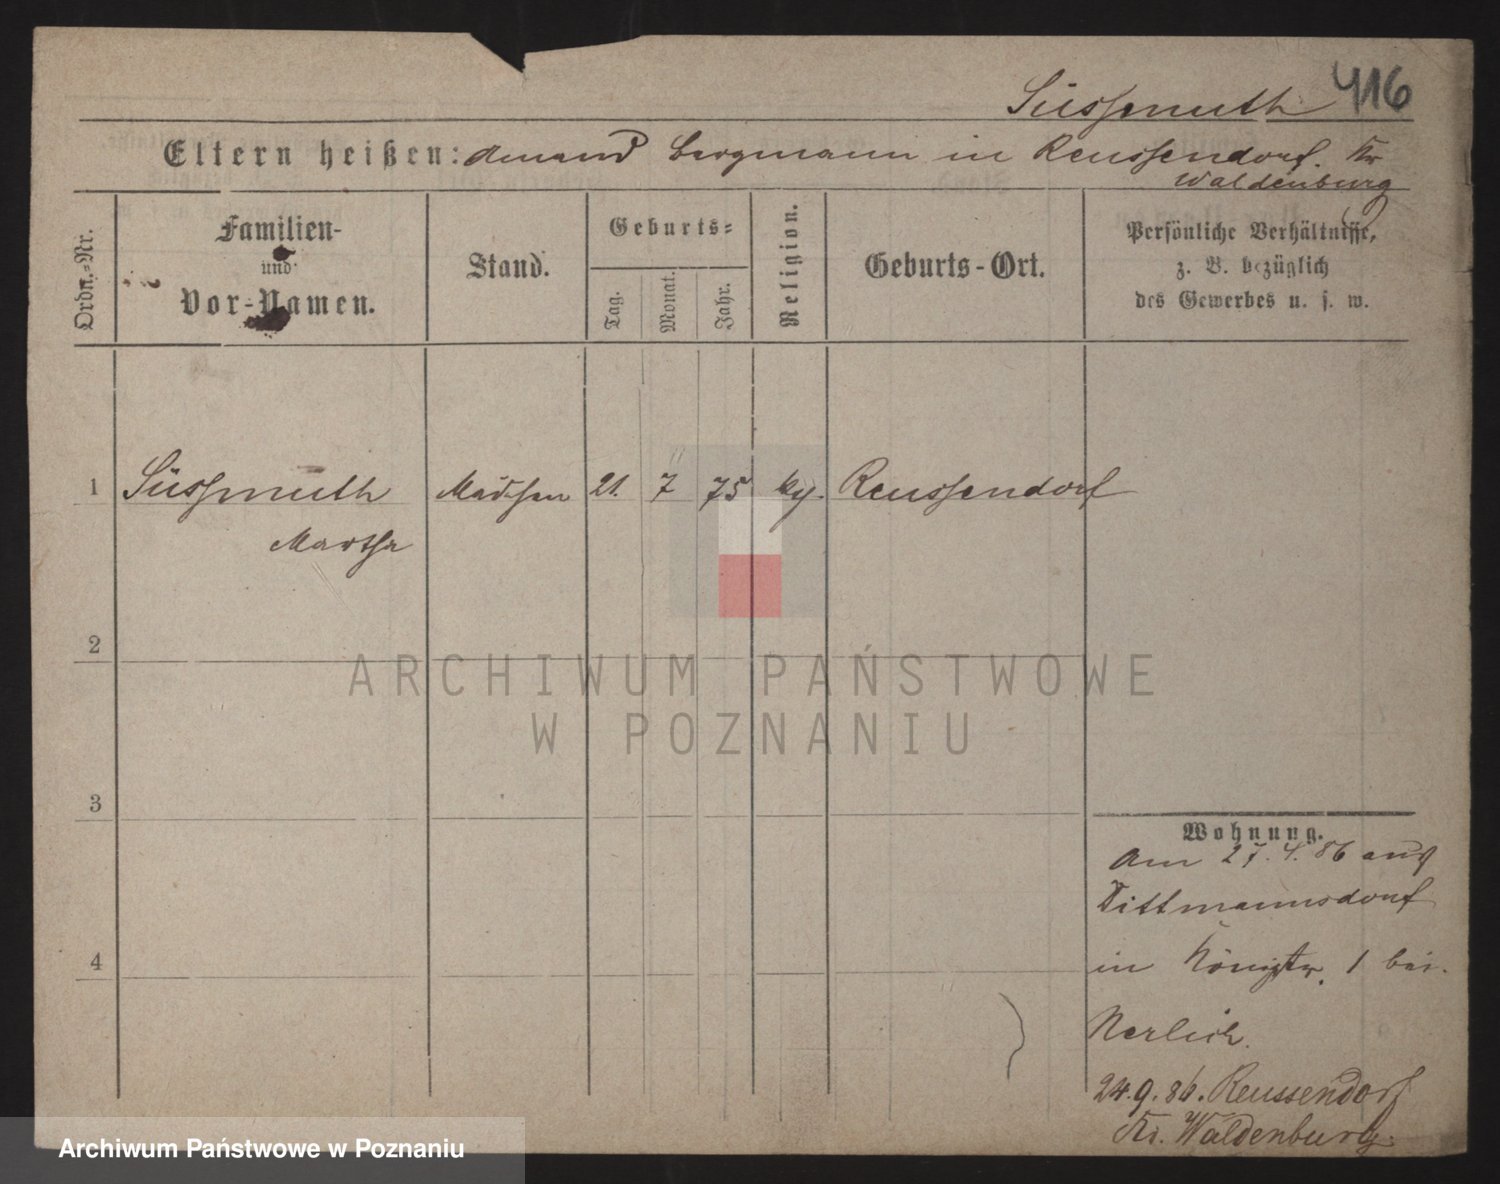 Süssmuth 416
Eltern heißen: Amand Bergmann in Reussendorf. Kr
Waldenburg
Ordn.-Nr.
Familien-
und
Vor-Namen.
Stand.
Geburts-
Tag.
Monat.
Jahr.
Religion.
Geburts-Ort.
Persönliche Verhältnisse,
z. B. bezüglich
des Gewerbes u. s. w.
1 Süssmuth Mädchen 21. 7 75 Reussendorf
Martha
2
3
4
Wohnung.
Am 27.4.86 aus
Dittmannsdorf
in 1 bei
Nerlich.
24.9.86. Reussendorf
Kr. Waldenburg.
ARCHIWUM PAŃSTWOWE
W POZNANIU
Archiwum Państwowe w Poznaniu